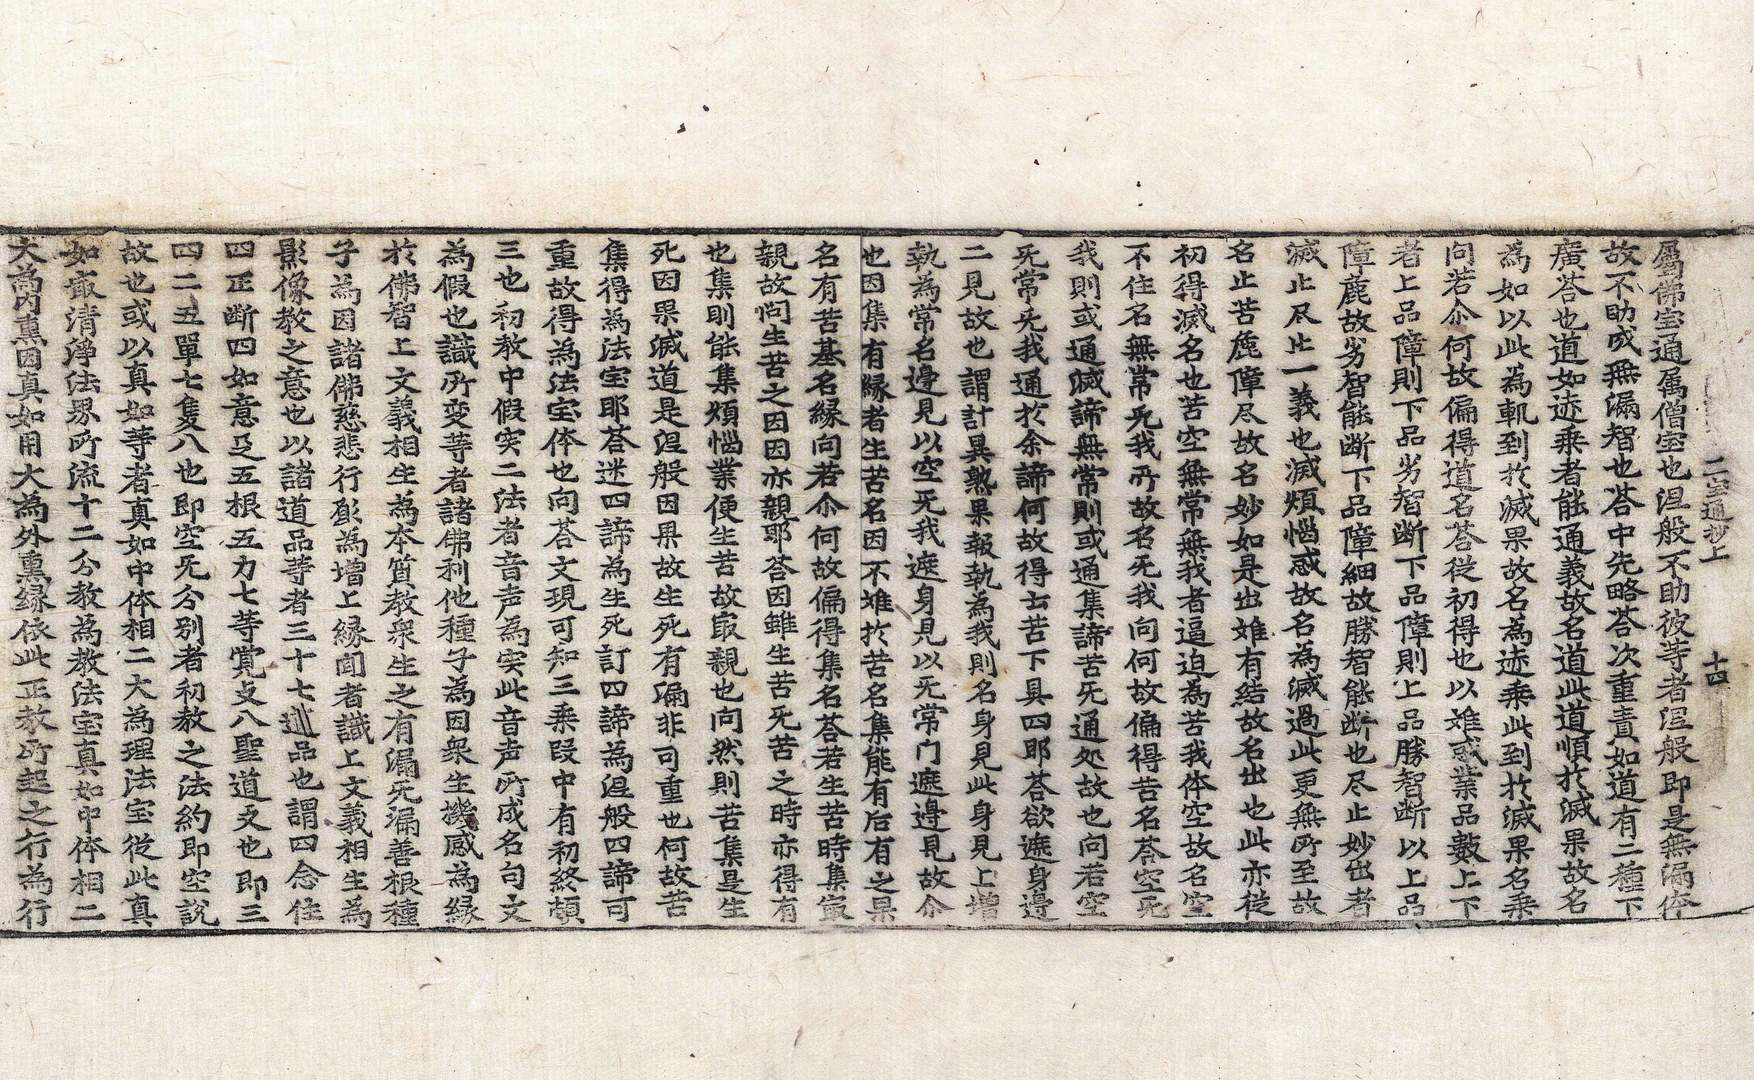 二空通抄上　十四
屬佛宝通属僧宝也涅般不助彼等者涅般即是無漏体
故不助成無漏智也荅中先略荅次重責如道有二種下
廣荅也道如迹乗者能通義故名道此道順扵滅果故名
為如以此為軌到扵滅果故名為迹乗此到扵滅果名乗
问若尒何故偏得道名荅從初得也以难或業品藪上下
者上品障則下品劣智断下品障則上品勝智断以上品
障麁故劣智能断下品障細故勝智能断也尽止妙出者
滅止尽止一義也滅煩惱惑故名為滅過此更無所至故
名止苦麁障尽故名妙如是出难有結故名出也此亦從
初得滅名也苦空無常無我者逼迫為苦我体空故名空
不住名無常无我所故名无我问何故偏得苦名荅空无
我則或通滅諦無常則或通集諦苦无通処故也问若空
无常无我通扵余諦何故得云苦下具四耶荅欲遮身邊
二見故也謂計異熟果報執為我則名身見此身見上増
執為常名邊見以空无我遮身見以无常门遮邊見故尒
也因集有縁者生苦名因不难扵苦名集能有后有之果
名有苦基名縁向若尒何故偏得集名荅若生苦時集㝡
親故问生苦之因因亦親耶荅因雖生苦无苦之時亦得有
也集則能集煩惱業便生苦故㝡親也问然則苦集是生
死因果滅道是涅般因果故生死有漏非可重也何故苦
集得為法宝耶荅迷四諦為生死訂四諦為涅般四諦可
重故得為法宝体也问荅文現可知三乗段中有初終頓
三也初教中假实二法者音声為实此音声所成名句文
為假也識所变等者諸佛利他種子為因衆生機感為縁
扵佛智上文義相生為本質教衆生之有漏无漏善根種
子為因諸佛慈悲行願為増上縁闻者識上文義相生為
影像教之意也以諸道品等者三十七道品也謂四念住
四正断四如意足五根五力七等覚支八聖道支也即三
四二五單七隻八也即空无分别者初教之法約即空說
故也或以真如等者真如中体相二大為理法宝從此真
如㝡清淨法界所流十二分教為教法宝真如中体相二
大為内熏因真如用大為外熏縁依此正教所起之行為行